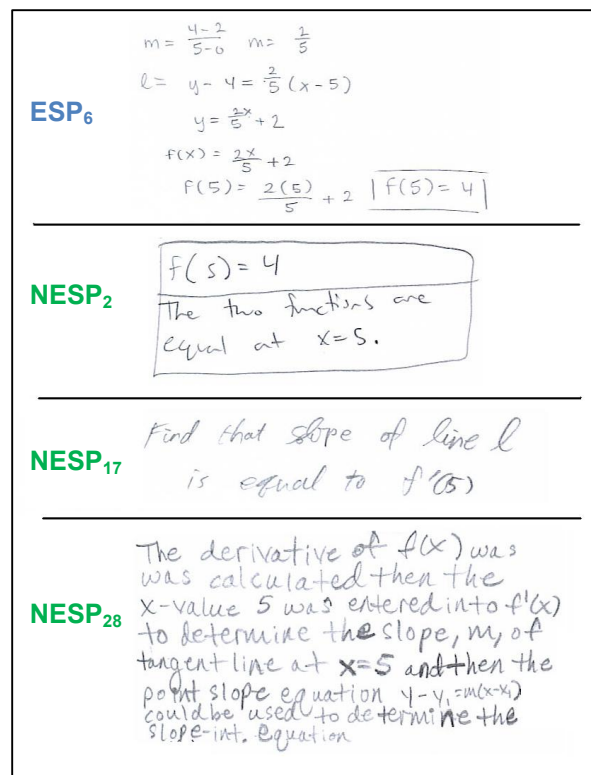 m = 4-2/5-0 m = 2/5
ESP6
l = y - 4 = 2/5 (x - 5)
y = 2x/5 + 2
f(x) = 2x/5 + 2
f(5) = 2(5)/5 + 2 | f(5) = 4 |
NESP2
f(5) = 4
The two functions are
equal at x = 5.
NESP17
Find that slope of line l
is equal to f'(5)
NESP28
The derivative of f(x) was
was calculated then the
x-value 5 was entered into f'(x)
to determine the slope, m, of
tangent line at x=5 and then the
point slope equation y-y₁=m(x-x₁)
could be used to determine the
slope-int. equation